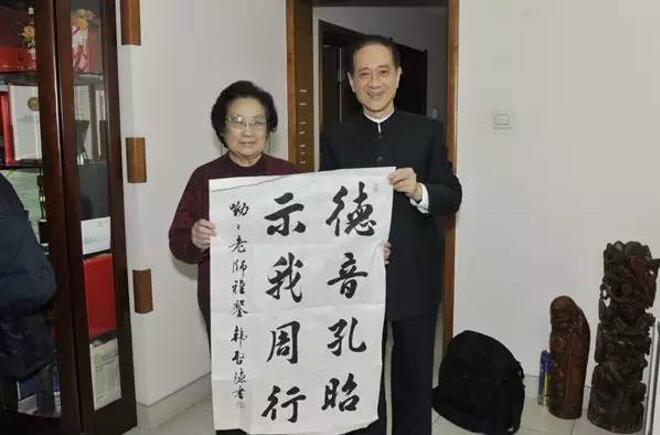 德音孔昭
示我周行
呦呦老师雅鉴 韩启德书